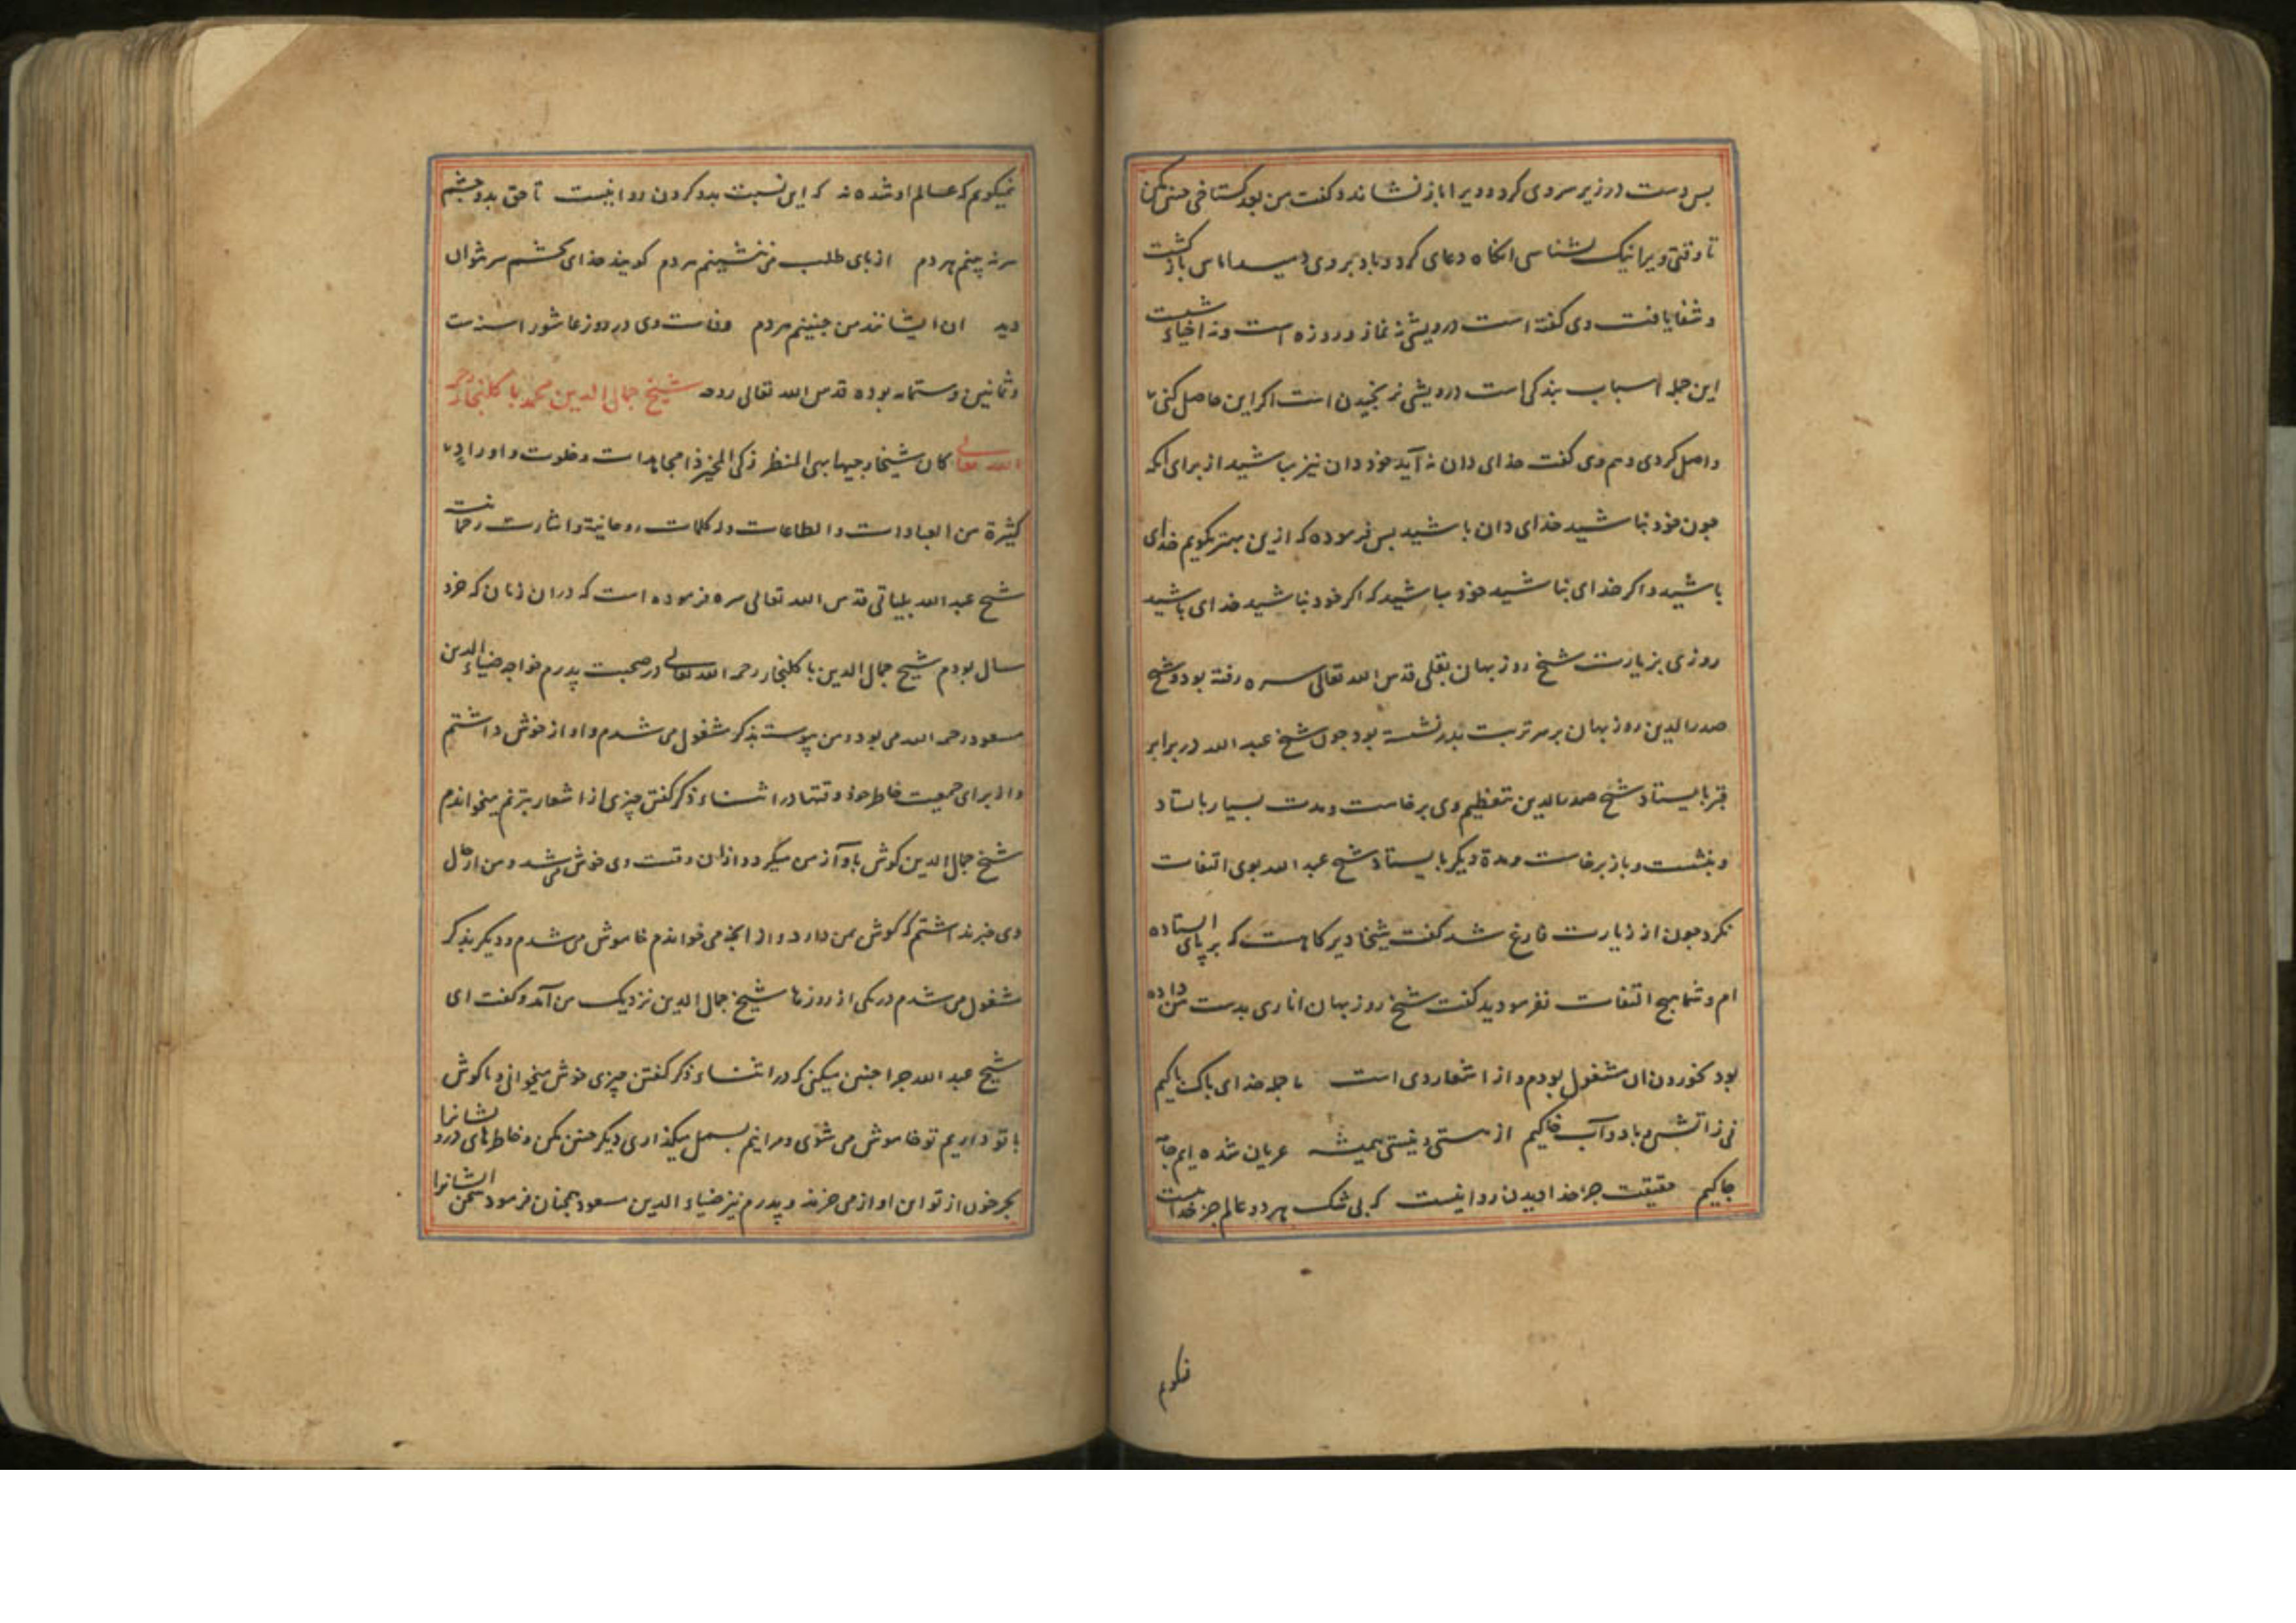 بس دست در زیر سر وی کرد و ویرا باز نشاند و کفت من بعد کستاخی چنین مکن
تا وقتی ویرا نیک بشناسی انکاه دعای کرد و باد بر وی دمید اماس باز کشت
و شفا یافت وی کفته است درویشی نه نماز و روزه است و نه احیاء شبست
این جمله اسباب بندکی است درویشی نرنجیدن است اکر این حاصل کنی
واصل کردی و هم وی کفت خدای دان نه آید خود دان نیز مباشید از برای انکه
جون خود نباشید خدای دان باشید بس فرموده که ازین بهتر بکویم خدای
باشید و اکر خدای نباشید خود مباشید که اکر خود نباشید خدای باشید
روزی بزیارت شیخ روزبهان بقلی قدس الله تعالی سره رفته بود و شیخ
صدرالدین روزبهان بر سر تربت بدر نشسته بود جون شیخ عبد الله در برابر
قبر بایستاد شیخ صدرالدین بتعظیم وی برخاست و مدت بسیار باستاد
و بنشست و باز برخاست و مدة دیکر بایستاد شیخ عبد الله بوی التفات
نکرد جون از زیارت فارغ شد کفت شیخا دیر کاهست که بر پای ایستاده
ام و شما هیج التفات نفرمودید کفت شیخ روزبهان اناری بدست من داده
بود بخوردن ان مشغول بودم و از اشعار وی است ما جمله خدای باک باکیم
نی ز اتش و باد و آب و خاکیم از هستی و نیستی همیشه عریان شده ایم جامه
جاکیم حقیقت جز خدا دیدن روا نیست که بی شک هر دو عالم جز خدا نیست
نمیکویم
نمیکویم که عالم او شده نه که این نسبت بدو کردن روا نیست تا حق بدو جشم
سر نه بینم هر دم از بای طلب می ننشینم هر دم کویند خدای بچشم سر نتوان
دید ان ایشانند من جنینم هر دم وفات وی در روز عاشورا سنه ست
و ثمانین و ستمایه بوده قدس الله تعالی روحه شیخ جمال الدین محمد باکلنجار رحمه
الله تعالی کان شیخا وجیها بهی المنظر زکی المخبر ذا مجاهدات و خلوت و اوراد
کثیرة من العبادات و الطاعات وله کلمات روحانیة و اشارت رحمانیت
شیخ عبد الله بلیانی قدس الله تعالی سره فرموده است که دران زمان که خرد
سال بودم شیخ جمال الدین باکلنجار رحمه الله تعالی در صحبت پدرم خواجه ضیاء الدین
مسعود رحمه الله می بود و من پیوسته بذکر مشغول می شدم و اواز خوش داشتم
و از برای جمعیت خاطر خود وقتها در اثناء ذکر کفتن چیزی از اشعار بترنم میخواندم
شیخ جمال الدین کوش باواز من میکرد و ازان وقت وی خوش می شد و من از حال
وی خبر نداشتم که کوش بمن دارد و از انچه می خواندم خاموش می شدم و دیکر بذکر
مشغول می شدم در یکی از روزها شیخ جمال الدین نزدیک من آمد و کفت ای
شیخ عبد الله جرا جنین میکنی که در اثناء ذکر کفتن چیزی خوش میخوانی و ما کوش
با تو داریم تو خاموش می شوی و مرا نیم بسمل میکذاری دیکر جنین مکن و خاطرهای درویشانرا
بجر خون از تو این اواز می خرند و پدرم نیز ضیاء الدین مسعود همچنان فرمود سخن ایشانرا